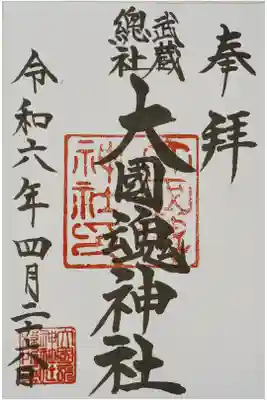 奉拝
武蔵
總社
大國魂神社
令和六年四月二十六日